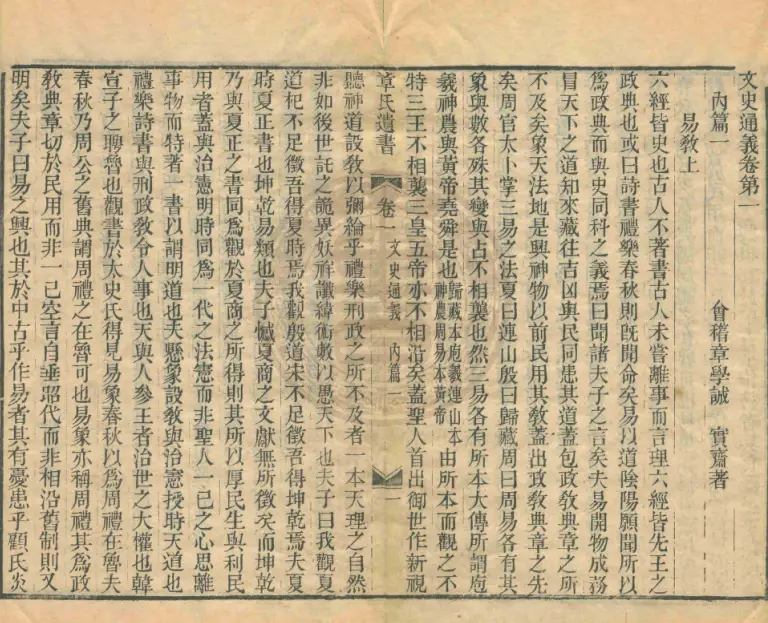 文史通義卷第一
內篇一　會稽章學誠　實齋著
易敎上
六經皆史也古人不著書古人未嘗離事而言理六經皆先王之
政典也或曰詩書禮樂春秋則旣聞命矣易以道陰陽願聞所以
爲政典而與史同科之義焉曰聞諸夫子之言矣夫易開物成務
冒天下之道知來藏往吉凶與民同患其道蓋包政敎典章之所
不及矣象天法地是興神物以前民用其敎蓋出政敎典章之先
矣周官太卜掌三易之法夏曰連山殷曰歸藏周曰周易各有其
象與數各殊其變與占不相襲也然三易各有所本大傳所謂庖
羲神農與黃帝堯舜是也歸藏本庖羲連山本神農周易本黃帝由所本而觀之不
特三王不相襲三皇五帝亦不相沿矣蓋聖人首出御世作新視
章氏遺書　卷一　文史通義　內篇一　一
聽神道設敎以彌綸乎禮樂刑政之所不及者一本天理之自然
非如後世託之詭異妖祥讖緯術數以愚天下也夫子曰我觀夏
道杞不足徵吾得夏時焉我觀殷道宋不足徵吾得坤乾焉夫夏
時夏正書也坤乾易類也夫子憾夏商之文獻無所徵矣而坤乾
乃與夏正之書同爲觀於夏商之所得則其所以厚民生與利民
用者蓋與治憲明時同爲一代之法憲而非聖人一己之心思離
事物而特著一書以謂明道也夫懸象設敎與治憲授時天道也
禮樂詩書與刑政敎令人事也天與人參王者治世之大權也韓
宣子之聘魯也觀書於太史氏得見易象春秋以爲周禮在魯夫
春秋乃周公之舊典謂周禮之在魯可也易象亦稱周禮其爲政
敎典章切於民用而非一己空言自垂昭代而非相沿舊制則又
明矣夫子曰易之興也其於中古乎作易者其有憂患乎顧氏炎